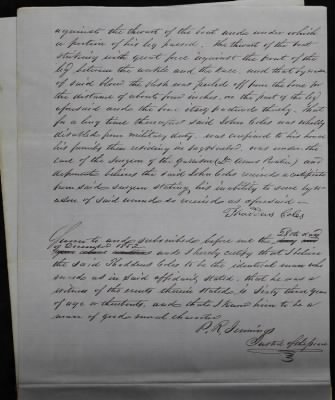 against the thwart of the boat and under which
a portion of his leg passed. The thwart of the boat
striking with great force against the front of the
leg between the ankle and the knee and that by reason
of said blow the flesh was peeled off from the bone for
the distance of about four inches on the part of the leg
aforesaid and the bone itself that
for a long time thereafter said John Coles was wholly
disabled from military duty was confined to his house
his family then residing in was under the
care of the Surgeon of the Garrison and
deponent believes the said John Coles received a certificate
from said surgeon stating his inability to serve by re-
ason of said wounds so received as aforesaid
Thaddeus Coles
Sworn to and subscribed before me the 28th day
of December 1852
and I hereby certify that I believe
the said Thaddeus Coles to be the identical man who
served as in said affidavit stated, that he was a
witness of the events therein stated is Sixty three years
of age or thereabouts, and that I know him to be a
man of good moral character
P. R. Jennings
Justice of the peace